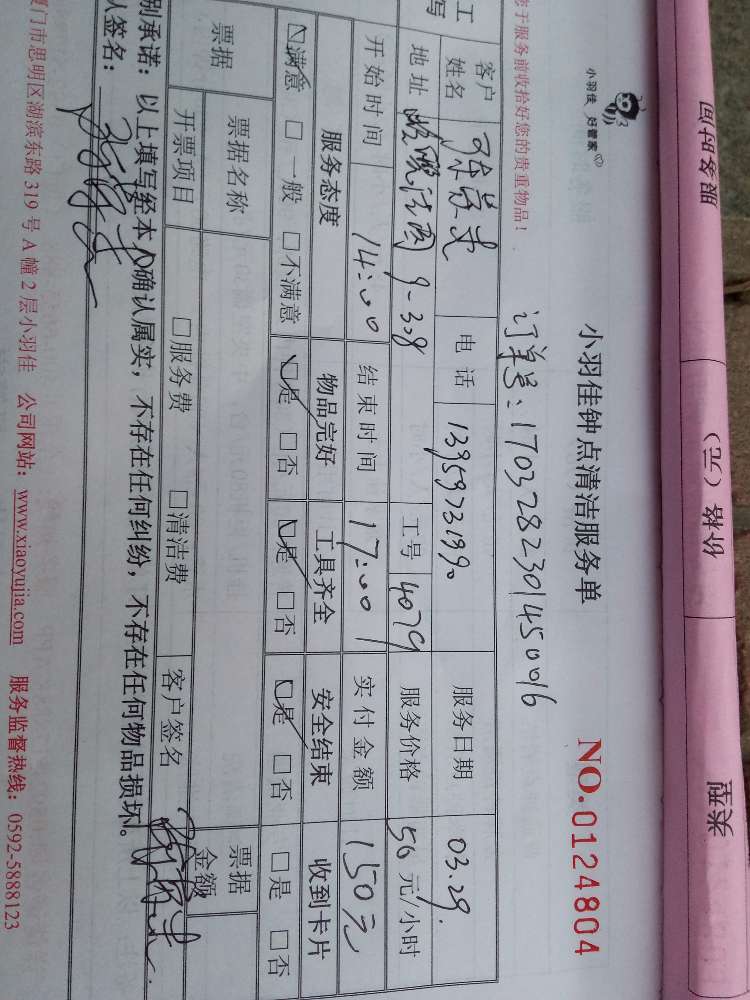 小羽佳 好管家
小羽佳钟点清洁服务单
NO.0124804
您于服务前收拾好您的贵重物品！
订单号：17032823014500 16
工
写
客户姓名
电话 13959731990
服务日期 03.29.
地址 9-308
工号 4079
服务价格 50元/小时
开始时间 14:00
结束时间 17:00
实付金额 150元
服务态度 物品完好 工具齐全 安全结束 收到卡片
☑满意 □一般 □不满意 ☑是 □否 ☑是 □否 ☑是 □否 □是 □否
票据 票据名称 票据金额
开票项目 □服务费 □清洁费 客户签名
别承诺：以上填写经本人确认属实，不存在任何纠纷，不存在任何物品损坏。
人签名：
厦门市思明区湖滨东路319号A幢2层小羽佳 公司网站：www.xiaoyujia.com 服务监督热线：0592-5888123
服务时间
价格（元）